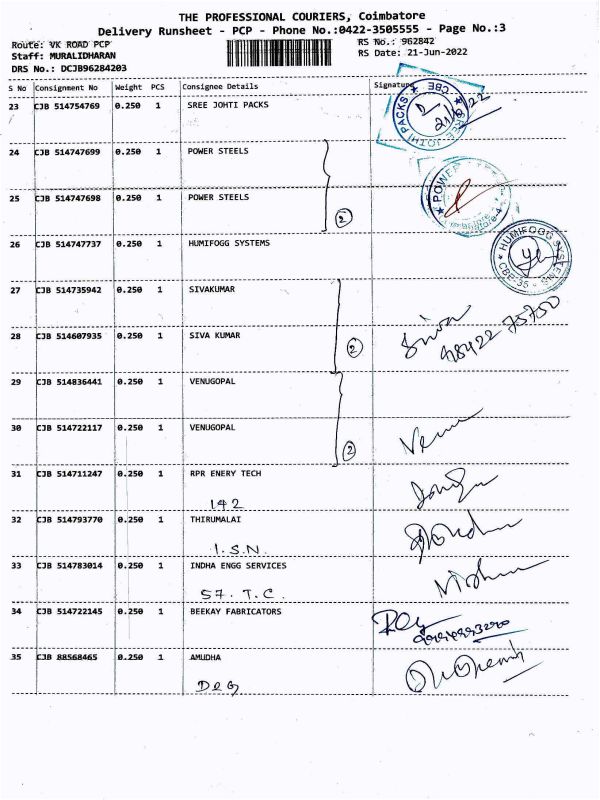 THE PROFESSIONAL COURIERS, Coimbatore
Delivery Runsheet - PCP - Phone No.:0422-3505555 - Page No.:3
Route: VK ROAD PCP RS No.: 962842
Staff: MURALIDHARAN RS Date: 21-Jun-2022
DRS No.: DCJB96284203
S No Consignment No Weight PCS Consignee Details Signature
23 CJB 514754769 0.250 1 SREE JOHTI PACKS
24 CJB 514747699 0.250 1 POWER STEELS
25 CJB 514747698 0.250 1 POWER STEELS
2
26 CJB 514747737 0.250 1 HUMIFOGG SYSTEMS
HUMIFOGG SYSTEMS CBE-35
27 CJB 514735942 0.250 1 SIVAKUMAR
28 CJB 514607935 0.250 1 SIVA KUMAR
2 Siva
98422 75750
29 CJB 514836441 0.250 1 VENUGOPAL
30 CJB 514722117 0.250 1 VENUGOPAL
2 Venu
31 CJB 514711247 0.250 1 RPR ENERY TECH
142
32 CJB 514793770 0.250 1 THIRUMALAI
I.S.N.
33 CJB 514783014 0.250 1 INDHA ENGG SERVICES
57. T.C.
34 CJB 514722145 0.250 1 BEEKAY FABRICATORS
35 CJB 88568465 0.250 1 AMUDHA